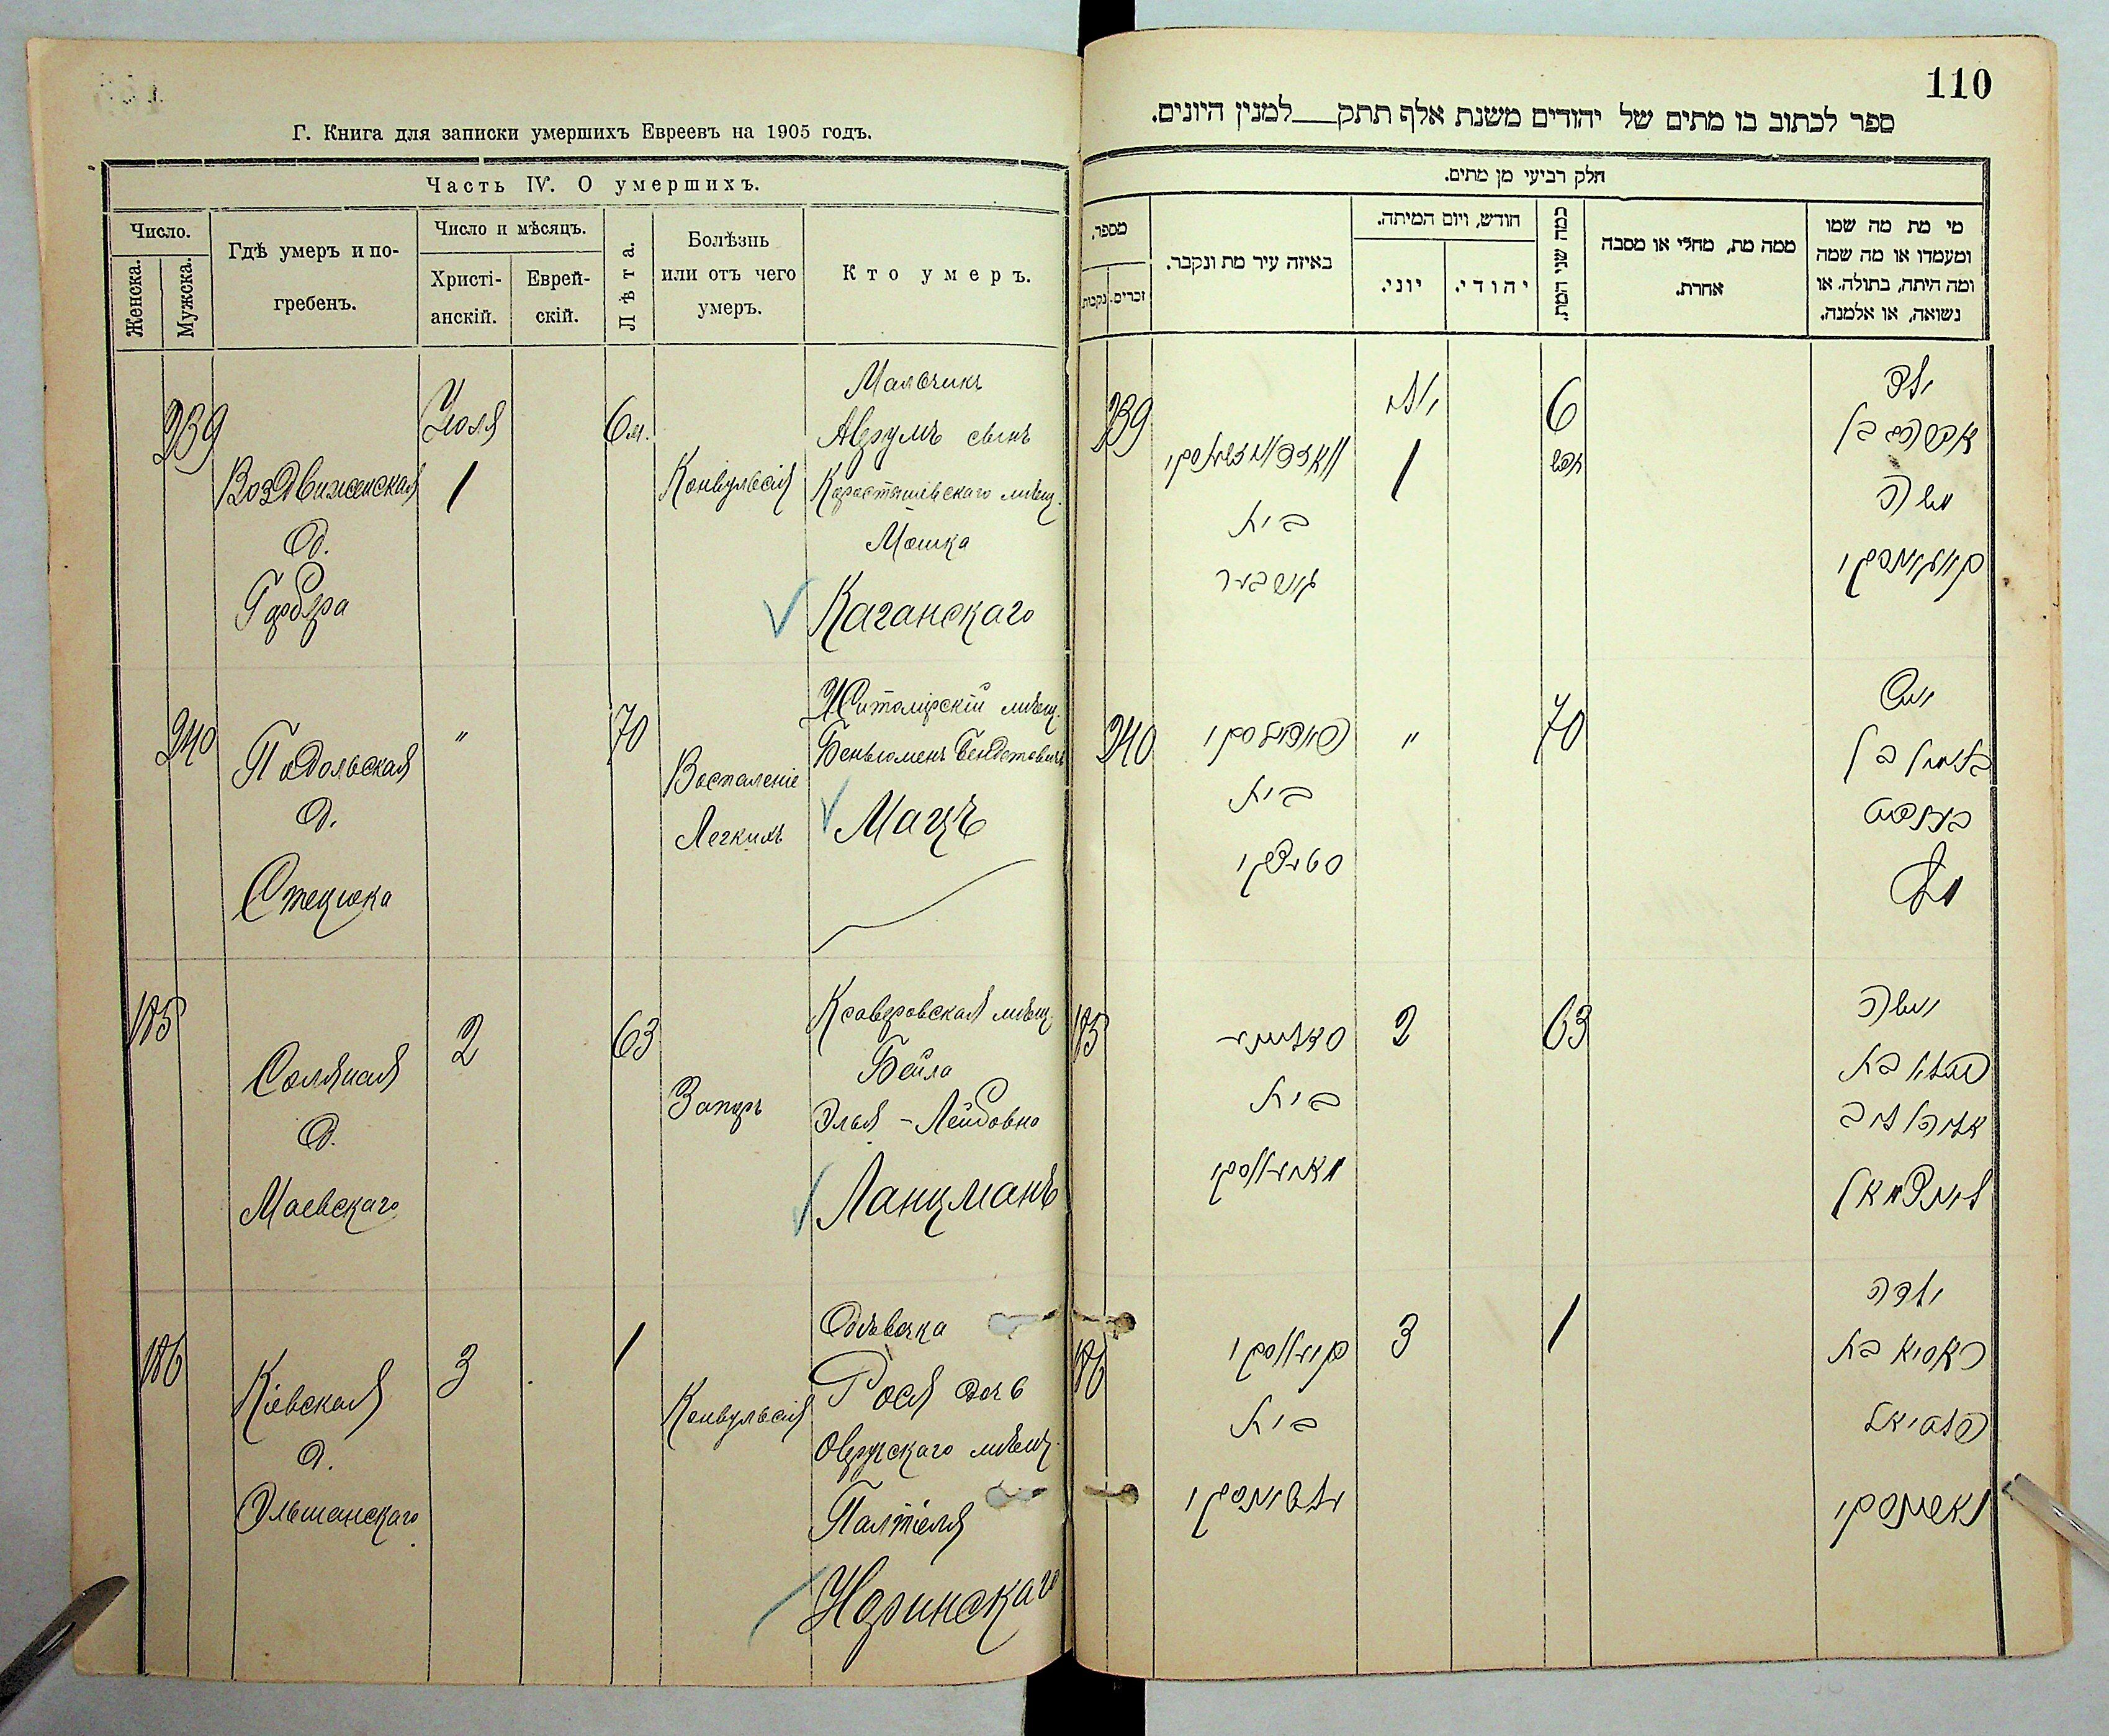 Г. Книга для записки умершихъ Евреевъ на 1905 годъ.
Часть IV. О умершихъ.
Число.
Женска.
Мужска.
Гдѣ умеръ и по-
гребенъ.
Число и мѣсяцъ.
Христі-
анскій.
Еврей-
скій.
Лѣта.
Болѣзнь
или отъ чего
умеръ.
Кто умеръ.
239
Воздвиженская
д.
Гербера
Июля
1
6 м.
Конвульсія
Мальчикъ
Аврумъ сынъ
Коростышевскаго мѣщ.
Мошка
Каганскаго
240
Подольская
д.
Стецюка
"
70
Воспаленіе
Легкихъ
Житомірскій мѣщ.
Беньюменъ Бендетовичъ
Мацъ
185
Соляная
д.
Маевскаго
2
63
Запоръ
мѣщ.
Бейла
Элья-Лейбовна
Ланцманъ
186
Кіевская
д.
Ольшанскаго
3
1
Конвульсія
Дѣвочка
Рося дочь
Овручскаго мѣщ.
Палтіеля
Норинскаго
110
ספר לכתוב בו מתים של יהודים משנת אלף תתק__למנין היונים.
חלק רביעי מן מתים.
מספר.
זכרים.
נקבות.
באיזה עיר מת ונקבר.
חודש, ויום המיתה.
יוני.
יהודי.
כמה שני המת.
ממה מת, מחלי או מסבה
אחרת.
מי מת מה שמו
ומעמדו או מה שמה
ומה היתה, בתולה, או
נשואה, או אלמנה.
239
בית
1
6
ילד
משה
240
בית
"
70
איש
בנימין בן
185
בית
2
63
אשה
ביילא בת
186
בית
3
1
ילדה
ראסיא בת
פלטיאל